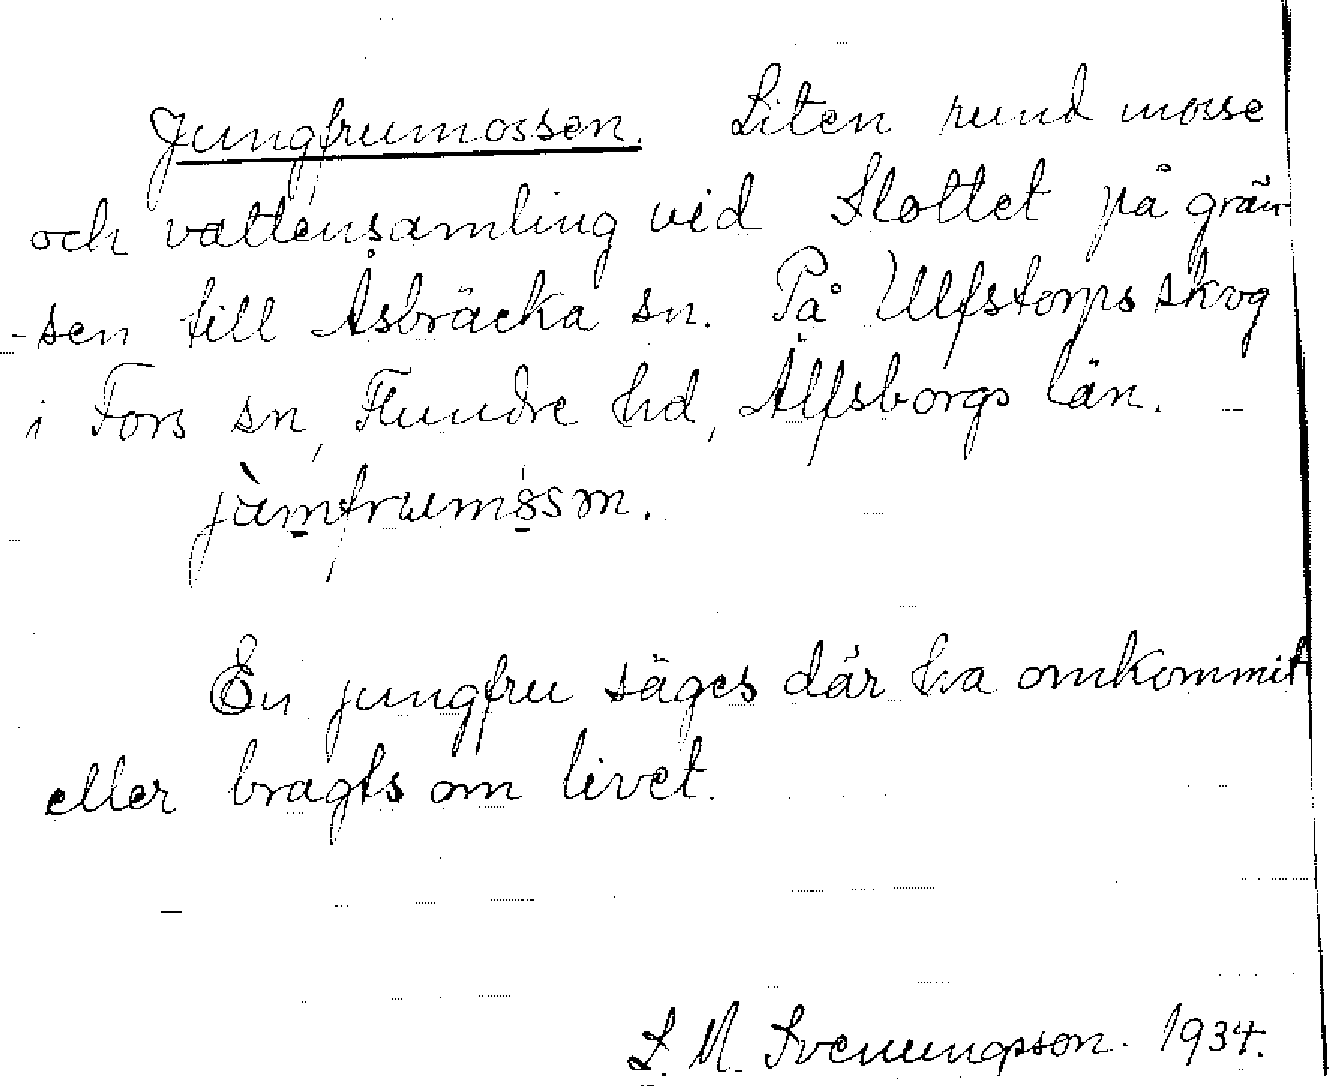 Jungfrumossen. Liten rund mosse
och vattensamling vid Slottet på grän-
-sen till Åsbräcka sn. På Ulfstorps skog
i Fors sn, Flundre hd, Älfsborgs län. -
En jungfru säges där ha omkommit
eller bragts om livet.
L. M. Svenungsson. 1934.